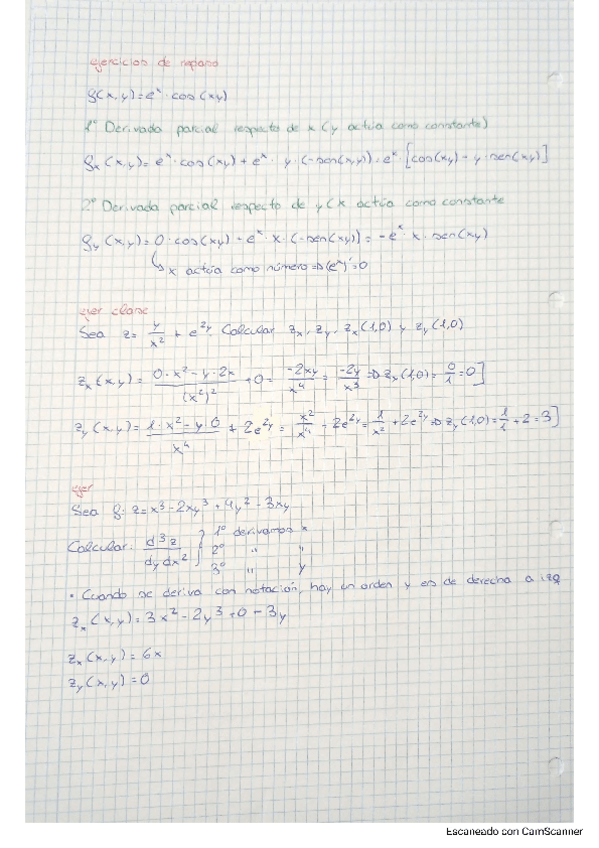 ejercicios de repaso
f(x,y)=eˣ·cos(xy)
1º Derivada parcial respecto de x (y actúa como constante)
fx(x,y)=eˣ·cos(xy)+eˣ·y·(-sen(x,y))=eˣ·[cos(xy)-y·sen(xy)]
2º Derivada parcial respecto de y (x actúa como constante
fy(x,y)=0·cos(xy)-eˣ·x·(-sen(xy)]=-eˣ·x·sen(xy)
↳ x actúa como número ⇒ (eˣ)'=0
ejer clase
Sea z= y/x² + e²ʸ. Calcular zx, zy, zx(1,0) y zy(1,0)
zx(x,y)= (0·x²-y·2x)/(x²)² +0= -2xy/x⁴ = -2y/x³ ⇒ zx(1,0)= 0/1 =0]
zy(x,y)= (1·x²-y·0)/x⁴ + 2e²ʸ= x²/x⁴ - 2e²ʸ= 1/x² +2e²ʸ ⇒ zy(1,0)= 1/1 +2=3]
ejer
Sea f: z=x³-2xy³+4y²-3xy
Calcular: d³z/dydx² } 1º derivamos x
2º " "
3º " y
• Cuando se deriva con notación, hay un orden y es de derecha a izq
zx(x,y)=3x²-2y³+0-3y
zx(x,y)=6x
zy(x,y)=0
Escaneado con CamScanner